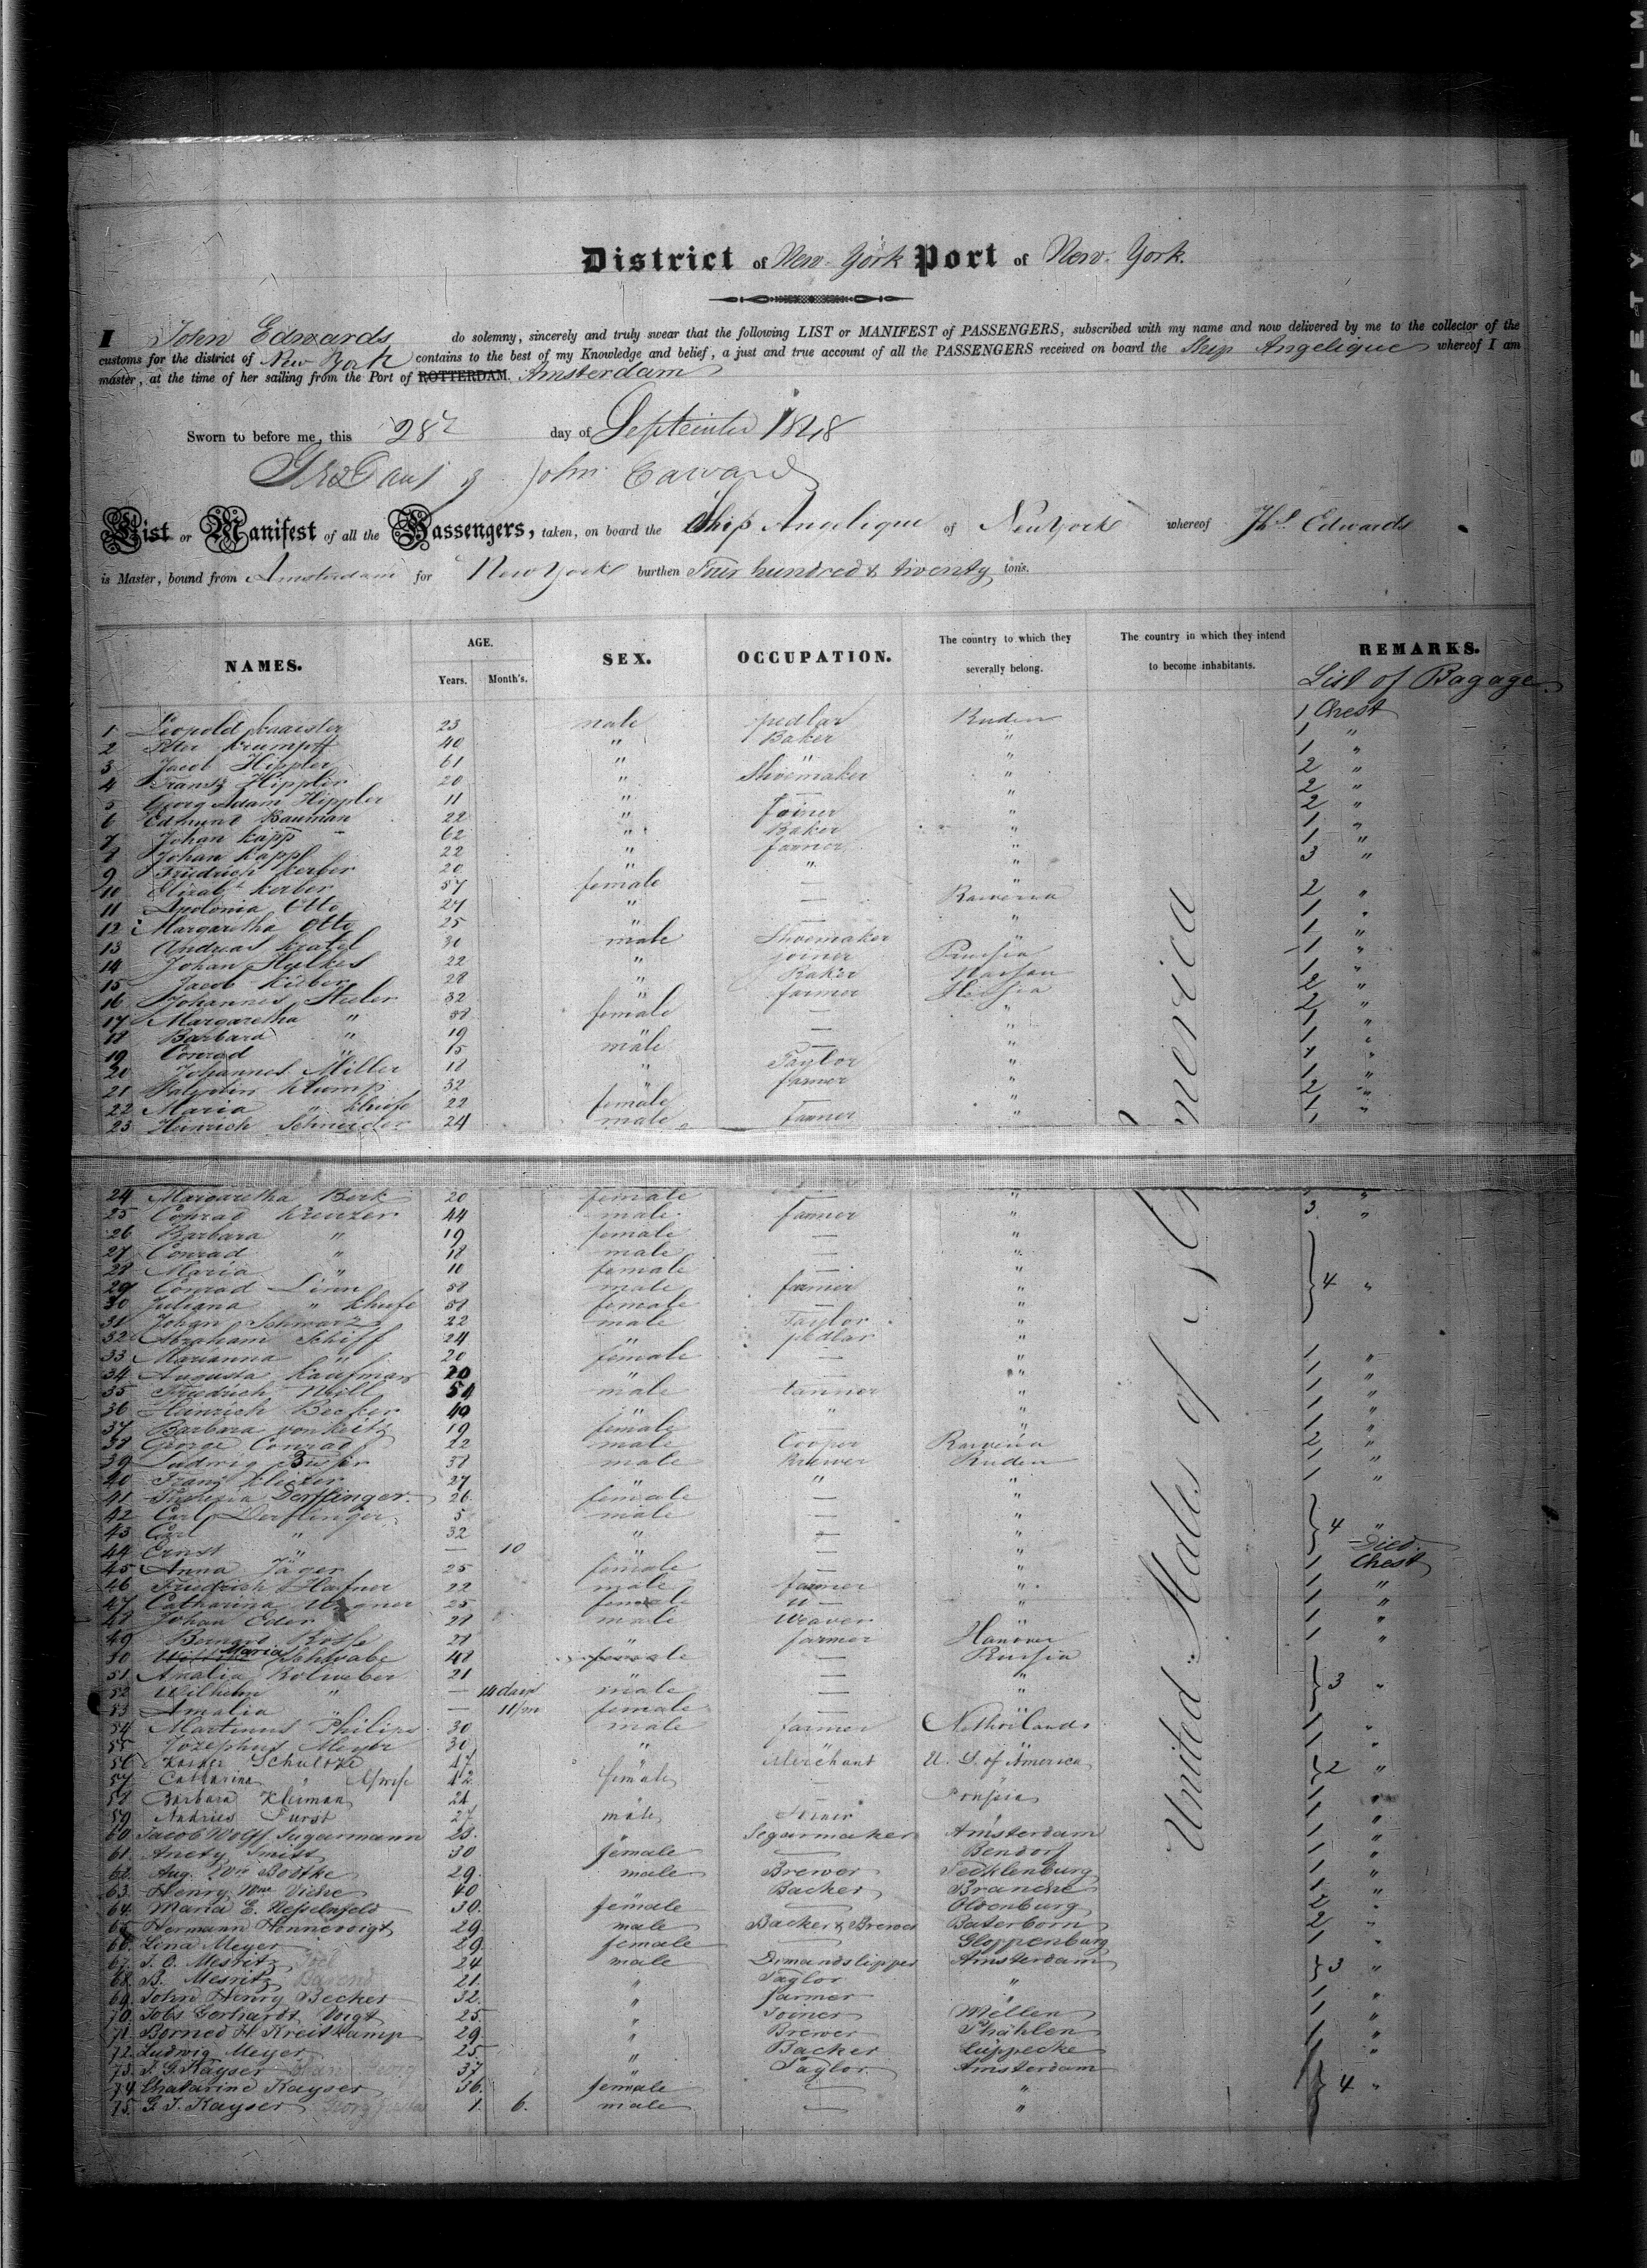 District of New-York Port of New-York.
I John Edwards do solemny, sincerely and truly swear that the following LIST or MANIFEST of PASSENGERS, subscribed with my name and now delivered by me to the collector of the
customs for the district of New York contains to the best of my Knowledge and belief, a just and true account of all the PASSENGERS received on board the Ship Angelique whereof I am
master, at the time of her sailing from the Port of ROTTERDAM. Amsterdam
Sworn to before me, this 28 day of September 1848
John Edwards
List or Manifest of all the Passengers, taken, on board the Ship Angelique of New York whereof Jhs Edwards
is Master, bound from Amsterdam for New York burthen Four hundred & twenty tons.
NAMES. AGE. Years. Month's. SEX. OCCUPATION. The country to which they severally belong. The country in which they intend to become inhabitants. REMARKS.
List of Bagage
1 Leopold 23 male pedlar 1 Chest
2 Peter Krumpff 40 " Baker " 1 "
3 Jacob Hippler 61 " " " 1 "
4 Frantz Hippler 20 " Shoemaker " 2 "
5 Georg Adam Hippler 11 " — " 2 "
6 Edmund Bauman 22 " Joiner " 2 "
7 Johan Kapp 62 " Baker " 1 "
8 Johan Kapp 22 " farmer " 1 "
9 Friedrich Kerber 20 " " " 3 "
10 Kerber 57 female — "
11 Apolonia Otto 24 " — 2 "
12 Margaretha Otto 25 " — " 1 "
13 Andreas 31 male Shoemaker 1 "
14 Johan 22 " joiner Prussia 1 "
15 Jacob 28 " Baker Nassau 1 "
16 Johannes 32 " farmer Hessia 2 "
17 Margaretha " 38 female — " 2 "
18 Barbara " 19 — " 1 "
19 Conrad " 15 male — " 1 "
20 Johannes Miller 18 " Taylor " "
21 Klump 32 farmer " 1 "
22 Maria " 22 female " 2 "
23 Heinrich Schneider 24 male farmer " 1 "
24 Margaretha Berk 20 female — " "
25 Conrad Kreuzer 44 male farmer " 3 "
26 Barbara " 19 female — "
27 Conrad " 18 male — "
28 Maria " 10 female — "
29 Conrad Linn 58 male farmer " 4 "
30 Juliana " 51 female — "
31 Johan Schwarz 22 male Taylor "
32 Abraham Schiff 24 " pedlar "
33 Marianna " 20 female — " 1 "
34 Augusta Kaufman 20 " — " 1 "
35 Friedrich Will 54 male farmer " 1 "
36 Heinrich Becker 40 " " " 1 "
37 Barbara vonKeitz 19 female — " 1 "
38 George Conrad 22 male Cooper 2 "
39 Ludwig 38 male Brewer 1 "
40 Franz 27 " " " 1 "
41 Derflinger 26 female — "
42 Carl Derflinger 5 male — "
43 Carl " 32 " — " 4 "
44 Ernst " — 10 " — " Died
45 Anna Jäger 25 female — " 1 Chest
46 Friedrich Hafner 22 male farmer " 1 "
47 Catharina Wagner 25 female — " 1 "
48 Johan Eder 28 male Weaver " 1 "
49 Bernard 28 " farmer Hanover 1 "
50 Maria Schwabe 48 female —
51 Amalia 21 — "
52 Wilhelm " — 14 days male — " 3 "
53 Amalia " — 11/m female —
54 Martinus Philips 30 male farmer Netherlands 1 "
55 Josephus Meyer 30 " " " 1 "
56 Schultze 47 Merchant U. S. of America
57 Catharina " 42 female — 2 "
58 Barbara Kleiman 24 " — 1 "
59 Andries Furst 27 male Joiner " 1 "
60. Jacob Wolff Sugarmann 23. Segarmaker Amsterdam 1 "
61. Anety Smitt 30 female — Bendorf 1 "
62. Aug. Bodtke 29. male Brewer Tecklenburg 1 "
63. Henry Wm Viehe 40 Backer 1 "
64. Maria E. Nesselnfeld 30. female — Oldenburg 2 "
65. Hermann Hennevoigt 29. male Backer & Brewer Paterborn 2 "
66. Lina Meyer 29. female — Gloppenburg 1 "
67. Mesritz Joel 24 male Dimandslipper Amsterdam 3 "
68. B. Mesritz Barend 21. " Taylor "
69. John Henry Becker 32. " farmer " 1 "
70. Jobs Gerhardt Voigt 25. " Joiner Mellen 1 "
71. Berned H. Kreitkamp 29. " Brewer 1 "
72. Ludwig Meyer 25 " Backer 1 "
73. J. G. Kayser 37. " Taylor Amsterdam
74. Chatarine Kayser 36. female — " 4 "
75. G. J. Kayser 1. 6. male — "
United States of America
SAFETY A FILM